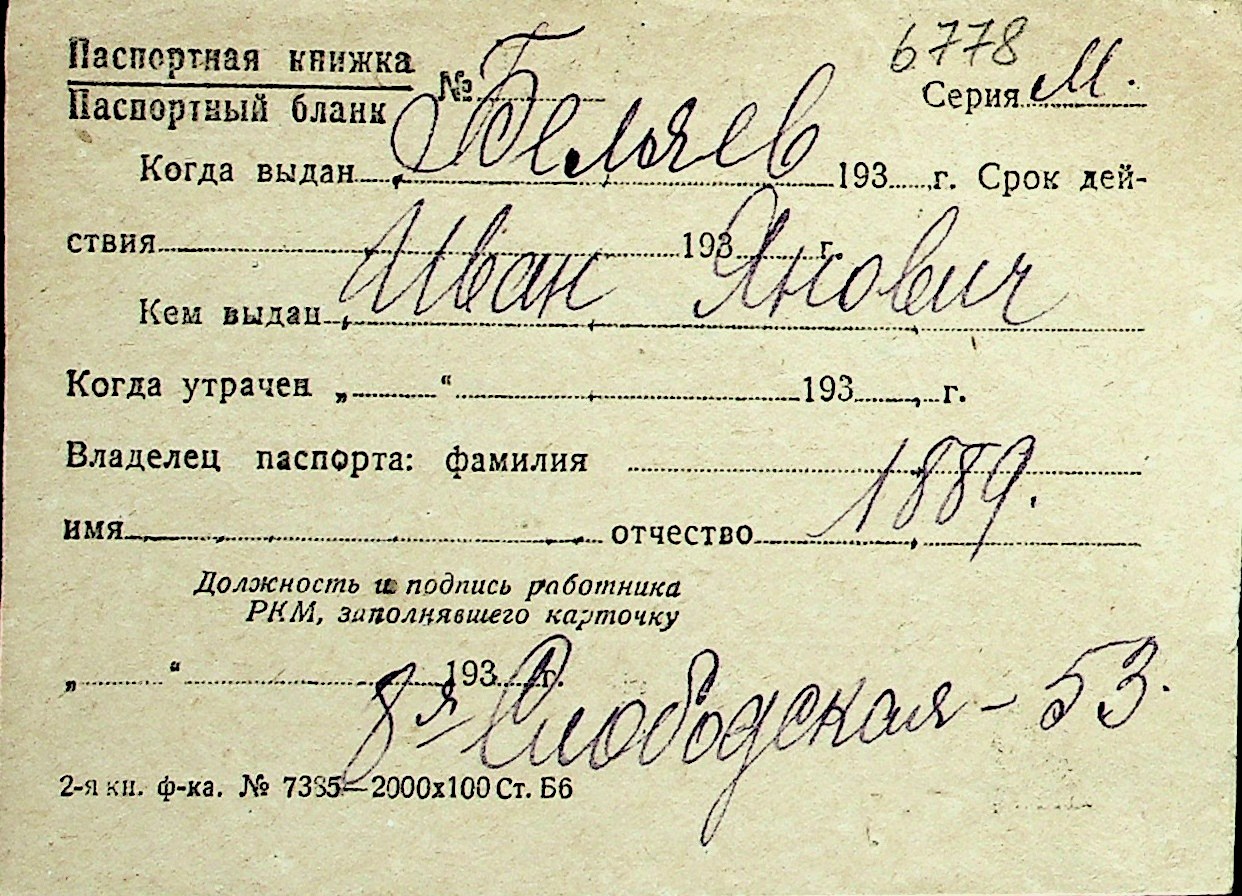 6778
Паспортная книжка
Паспортный бланк № Серия М.
Беляев
Когда выдан 193 г. Срок дей-
ствия 193 г.
Иван Янович
Кем выдан
Когда утрачен „ “ 193 г.
Владелец паспорта: фамилия
1889.
имя отчество
Должность и подпись работника
РКМ, заполнявшего карточку
„ “ 193 г.
8я Слободская - 53.
2-я кн. ф-ка. № 7385—2000х100 Ст. Б6